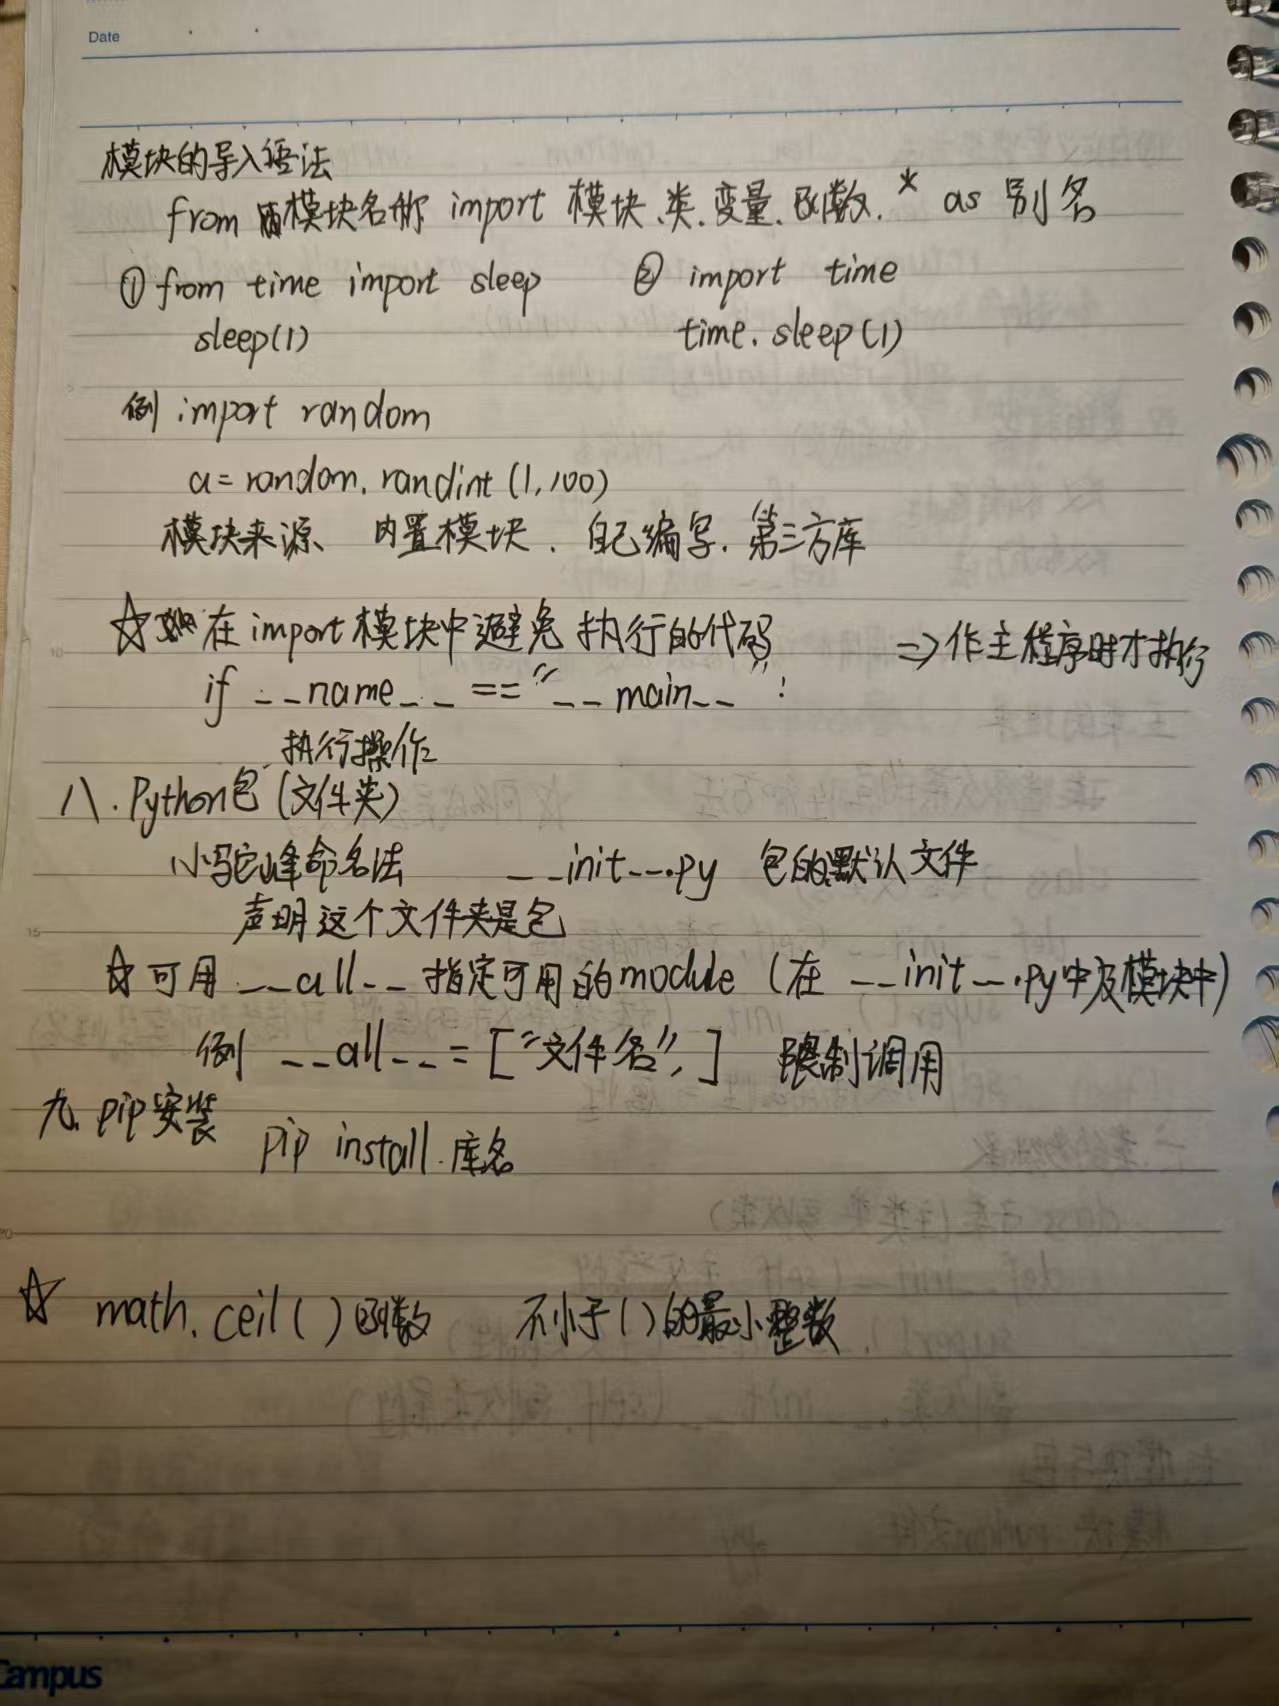 Date
模块的导入语法
from 模块名称 import 模块、类、变量、函数、* as 别名
① from time import sleep ② import time
sleep(1) time.sleep(1)
例 import random
a = random.randint(1,100)
模块来源、内置模块、自己编写、第三方库
☆ 在import模块中避免执行的代码 => 作主程序时才执行
if __name__ == "__main__":
执行操作
八.Python包(文件夹)
小驼峰命名法 __init__.py 包的默认文件
声明这个文件夹是包
☆ 可用 __all__ 指定可用的module (在 __init__.py中及模块中)
例 __all__ = ["文件名",] 限制调用
九.pip安装
pip install 库名
☆ math.ceil()函数 不小于()的最小整数
Campus